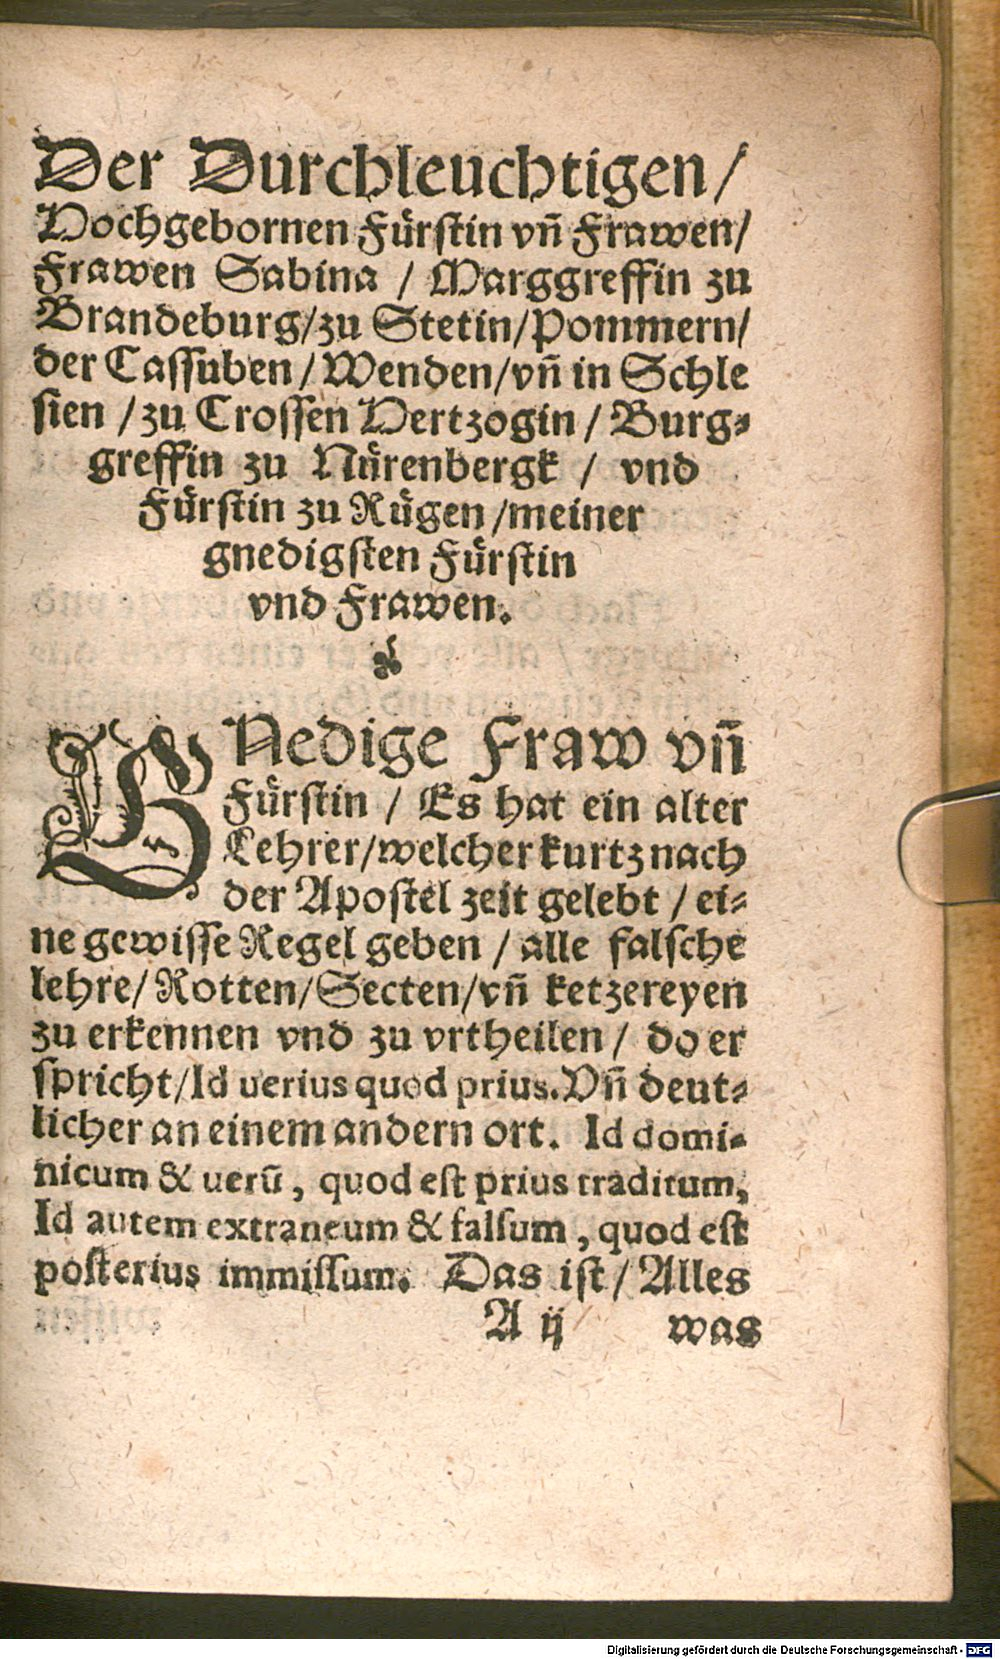 Der Durchleuchtigen/
Hochgebornen Fürstin vn̄ Frawen/
Frawen Sabina / Marggreffin zu
Brandeburg/zu Stetin/Pommern/
der Cassuben/Wenden/vn̄ in Schle
sien /zu Crossen Hertzogin / Burg⸗
greffin zu Nürenbergk / vnd
Fürstin zu Rügen /meiner
gnedigsten Fürstin
vnd Frawen.
GNedige Fraw vn̄
Fürstin / Es hat ein alter
Lehrer/welcher kurtz nach
der Apostel zeit gelebt / ei⸗
ne gewisse Regel geben / alle falsche
lehre/Rotten/Secten/vn̄ ketzereyen
zu erkennen vnd zu vrtheilen/ do er
spricht/Id uerius quod prius.Vn̄ deut⸗
licher an einem andern ort. Id domi⸗
nicum & uerū, quod est prius traditum,
Id autem extraneum & falsum, quod est
posterius immissum. Das ist/ Alles
A ij was
Digitalisierung gefördert durch die Deutsche Forschungsgemeinschaft - DFG